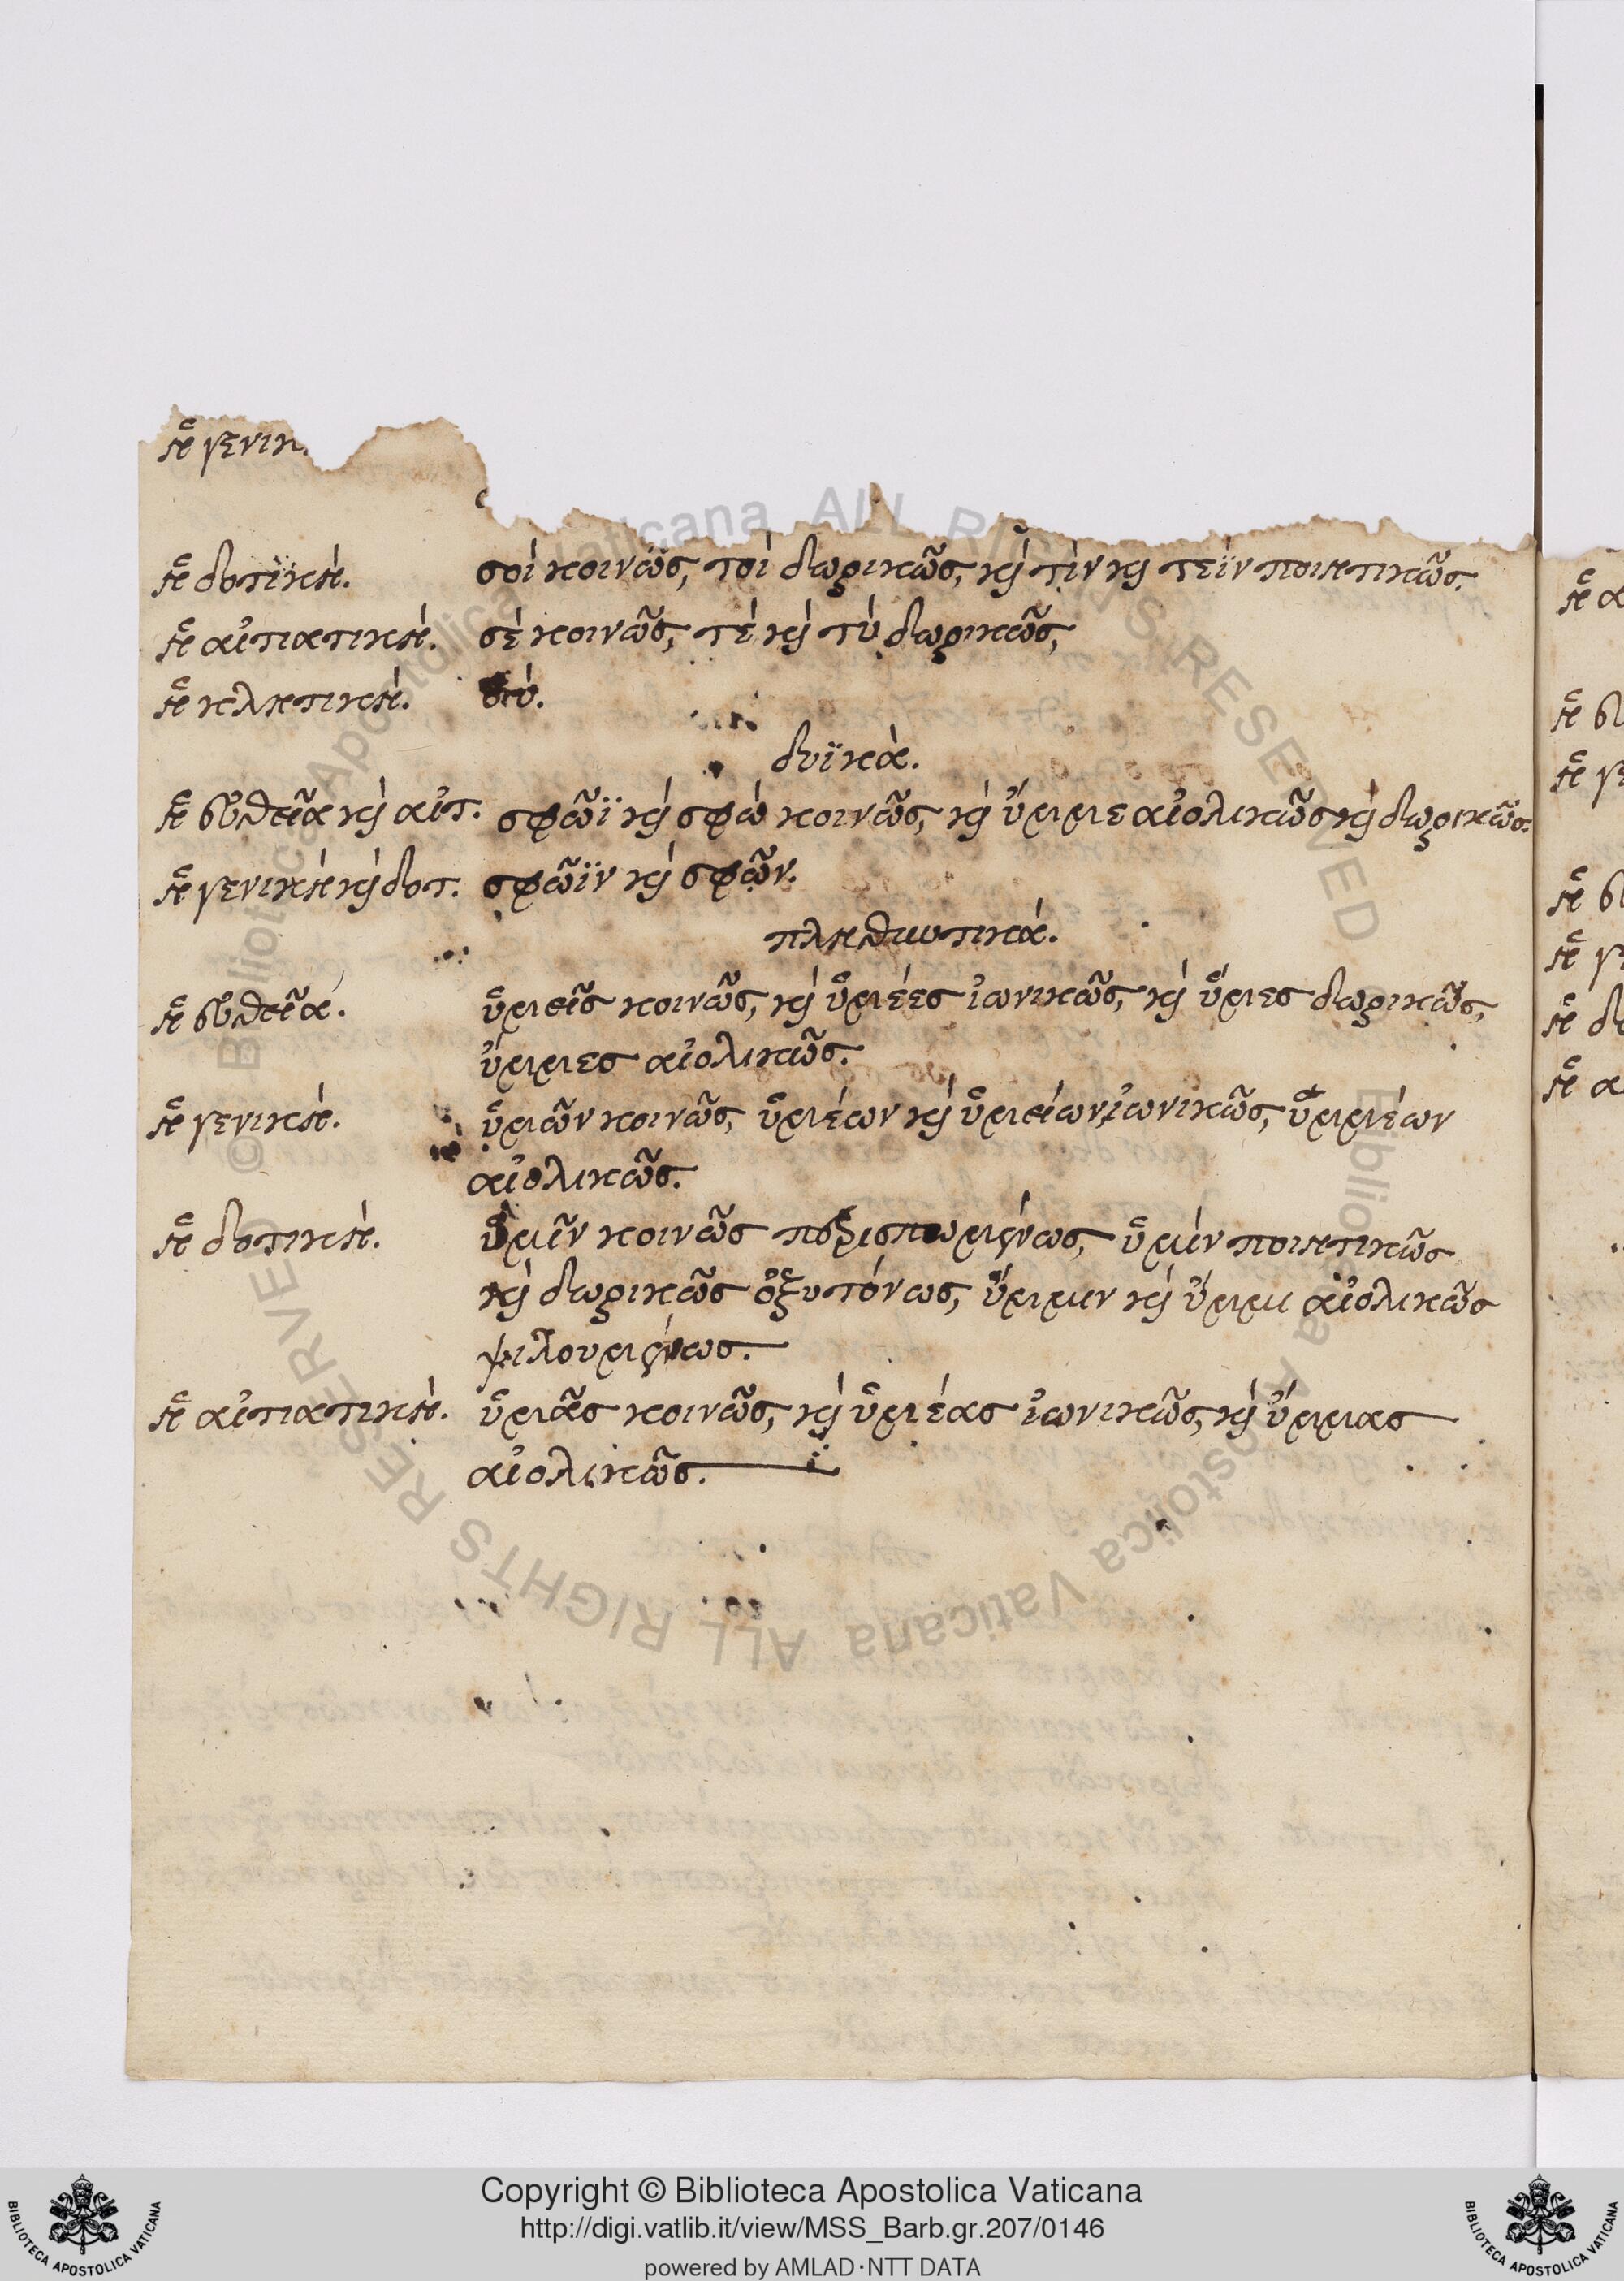 ἡ γενικ
ἡ δοτικὴ. σοὶ κοινῶς, τοὶ δωρικῶς, κὴ τὶν κὴ τεῒν ποιητικῶς.
ἡ αἰτιατικὴ. σὲ κοινῶς, τὲ κὴ τὺ δωρικῶς,
ἡ κλητικὴ. σύ.
δυϊκὰ.
ἡ εὐθεῖα κὴ αἰτ. σφῶϊ κὴ σφώ κοινῶς, κὴ ὔμμε αἰολικῶς κὴ δωρικῶς.
ἡ γενικὴ κὴ δοτ. σφῶϊν κὴ σφῷν.
πληθυντικά.
ἡ εὐθεῖα. ὑμεῖς κοινῶς, κὴ ὑμέες ἰωνικῶς, κὴ ὕμες δωρικῶς,
ὔμμες αἰολικῶς.
ἡ γενικὴ. ὑμῶν κοινῶς, ὑμέων κὴ ὑμείων ἰωνικῶς, ὑμμέων
αἰολικῶς.
ἡ δοτικὴ. ὑμῖν κοινῶς περισπωμένως, ὑμὶν ποιητικῶς
κὴ δωρικῶς ὀξυτόνως, ὔμμιν κὴ ὔμμι αἰολικῶς
ψιλουμένως.
ἡ αἰτιατικὴ. ὑμᾶς κοινῶς, κὴ ὑμέας ἰωνικῶς, κὴ ὔμμας
αἰολικῶς.
ἡ α
ἡ γε
ἡ γε
ἡ δο
ἡ α
Copyright © Biblioteca Apostolica Vaticana
http://digi.vatlib.it/view/MSS_Barb.gr.207/0146
powered by AMLAD·NTT DATA
BIBLIOTECA APOSTOLICA VATICANA
BIBLIOTECA APOSTOLICA VATICANA
© Biblioteca Apostolica Vaticana ALL RIGHTS RESERVED
© Biblioteca Apostolica Vaticana ALL RIGHTS RESERVED